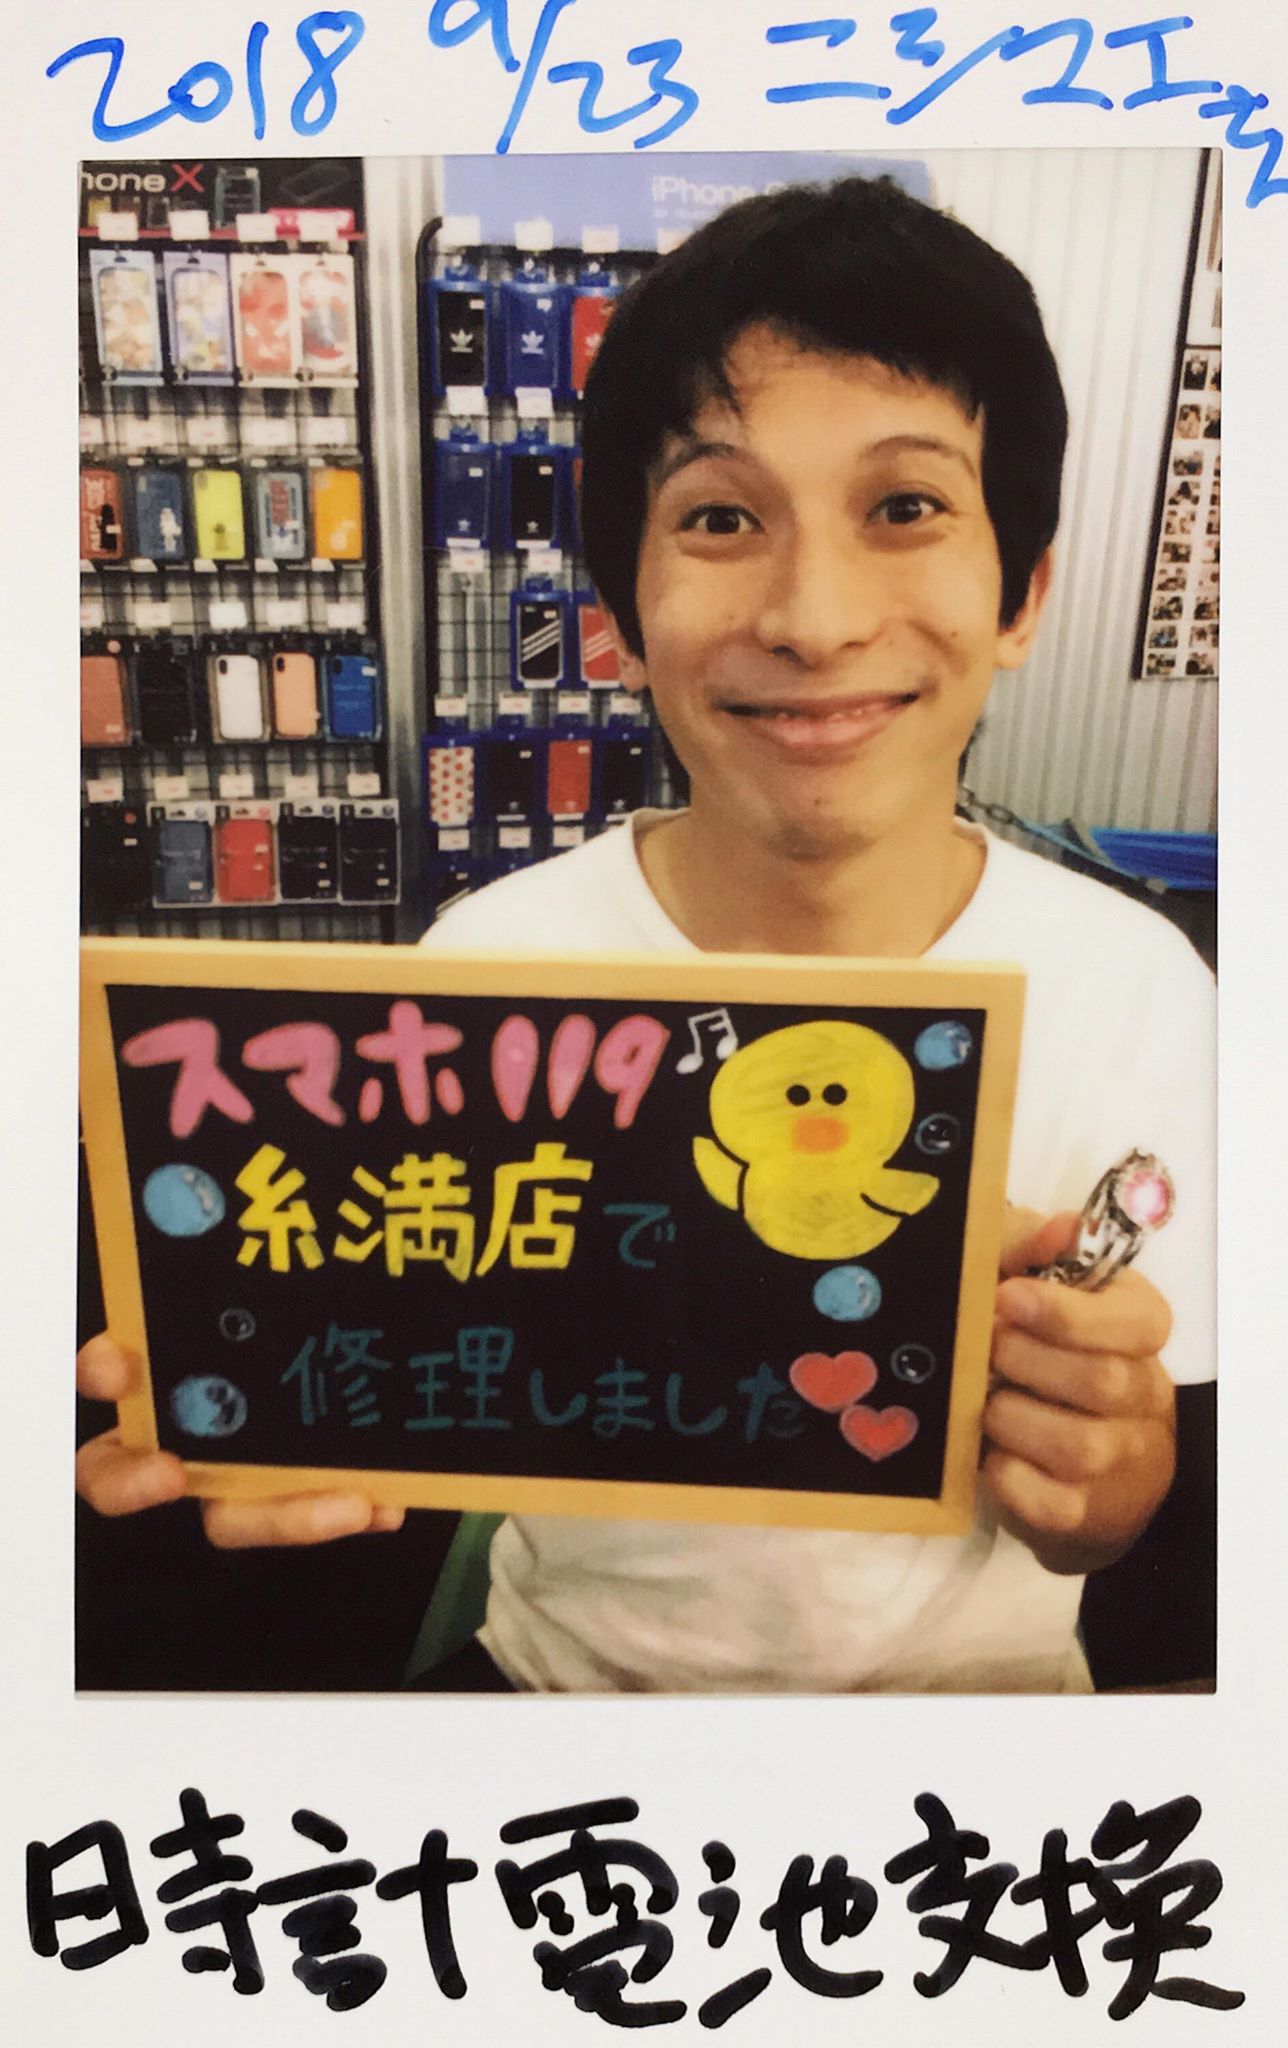 2018 9/23 ニシウエさま
honeX
iPhone
スマホ119
糸満店で
修理しました
時計電池交換